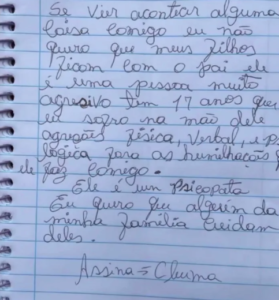 Se vier aconticer alguma
coisa comigo eu não
quero que meus filhos
ficam com o pai ele
é uma pessoa muito
agresivo tem 17 anos que
eu sofro na mão dele
agreções física, verbal, e
lógica para as humilhação
ele faz comigo.
Ele é um psicopata
Eu quero que alguém da
minha família cuidam
deles.
Assina = Chuma